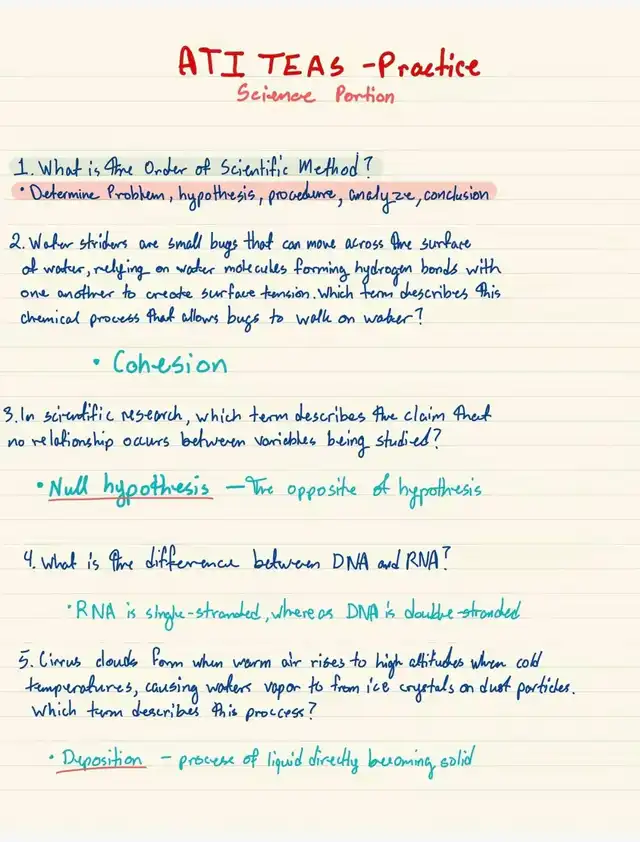 ATI TEAS - Practice
Science Portion
1. What is the Order of Scientific Method?
• Determine Problem, hypothesis, procedure, analyze, conclusion
2. Water striders are small bugs that can move across the surface
of water, relying on water molecules forming hydrogen bonds with
one another to create surface tension. Which term describes this
chemical process that allows bugs to walk on water?
• Cohesion
3. In scientific research, which term describes the claim that
no relationship occurs between variables being studied?
• Null hypothesis — The opposite of hypothesis
4. What is the difference between DNA and RNA?
• RNA is single-stranded, where as DNA is double-stranded
5. Cirrus clouds form when warm air rises to high altitudes when cold
temperatures, causing waters vapor to from ice crystals on dust particles.
Which term describes this proccess?
• Deposition — process of liquid directly becoming solid